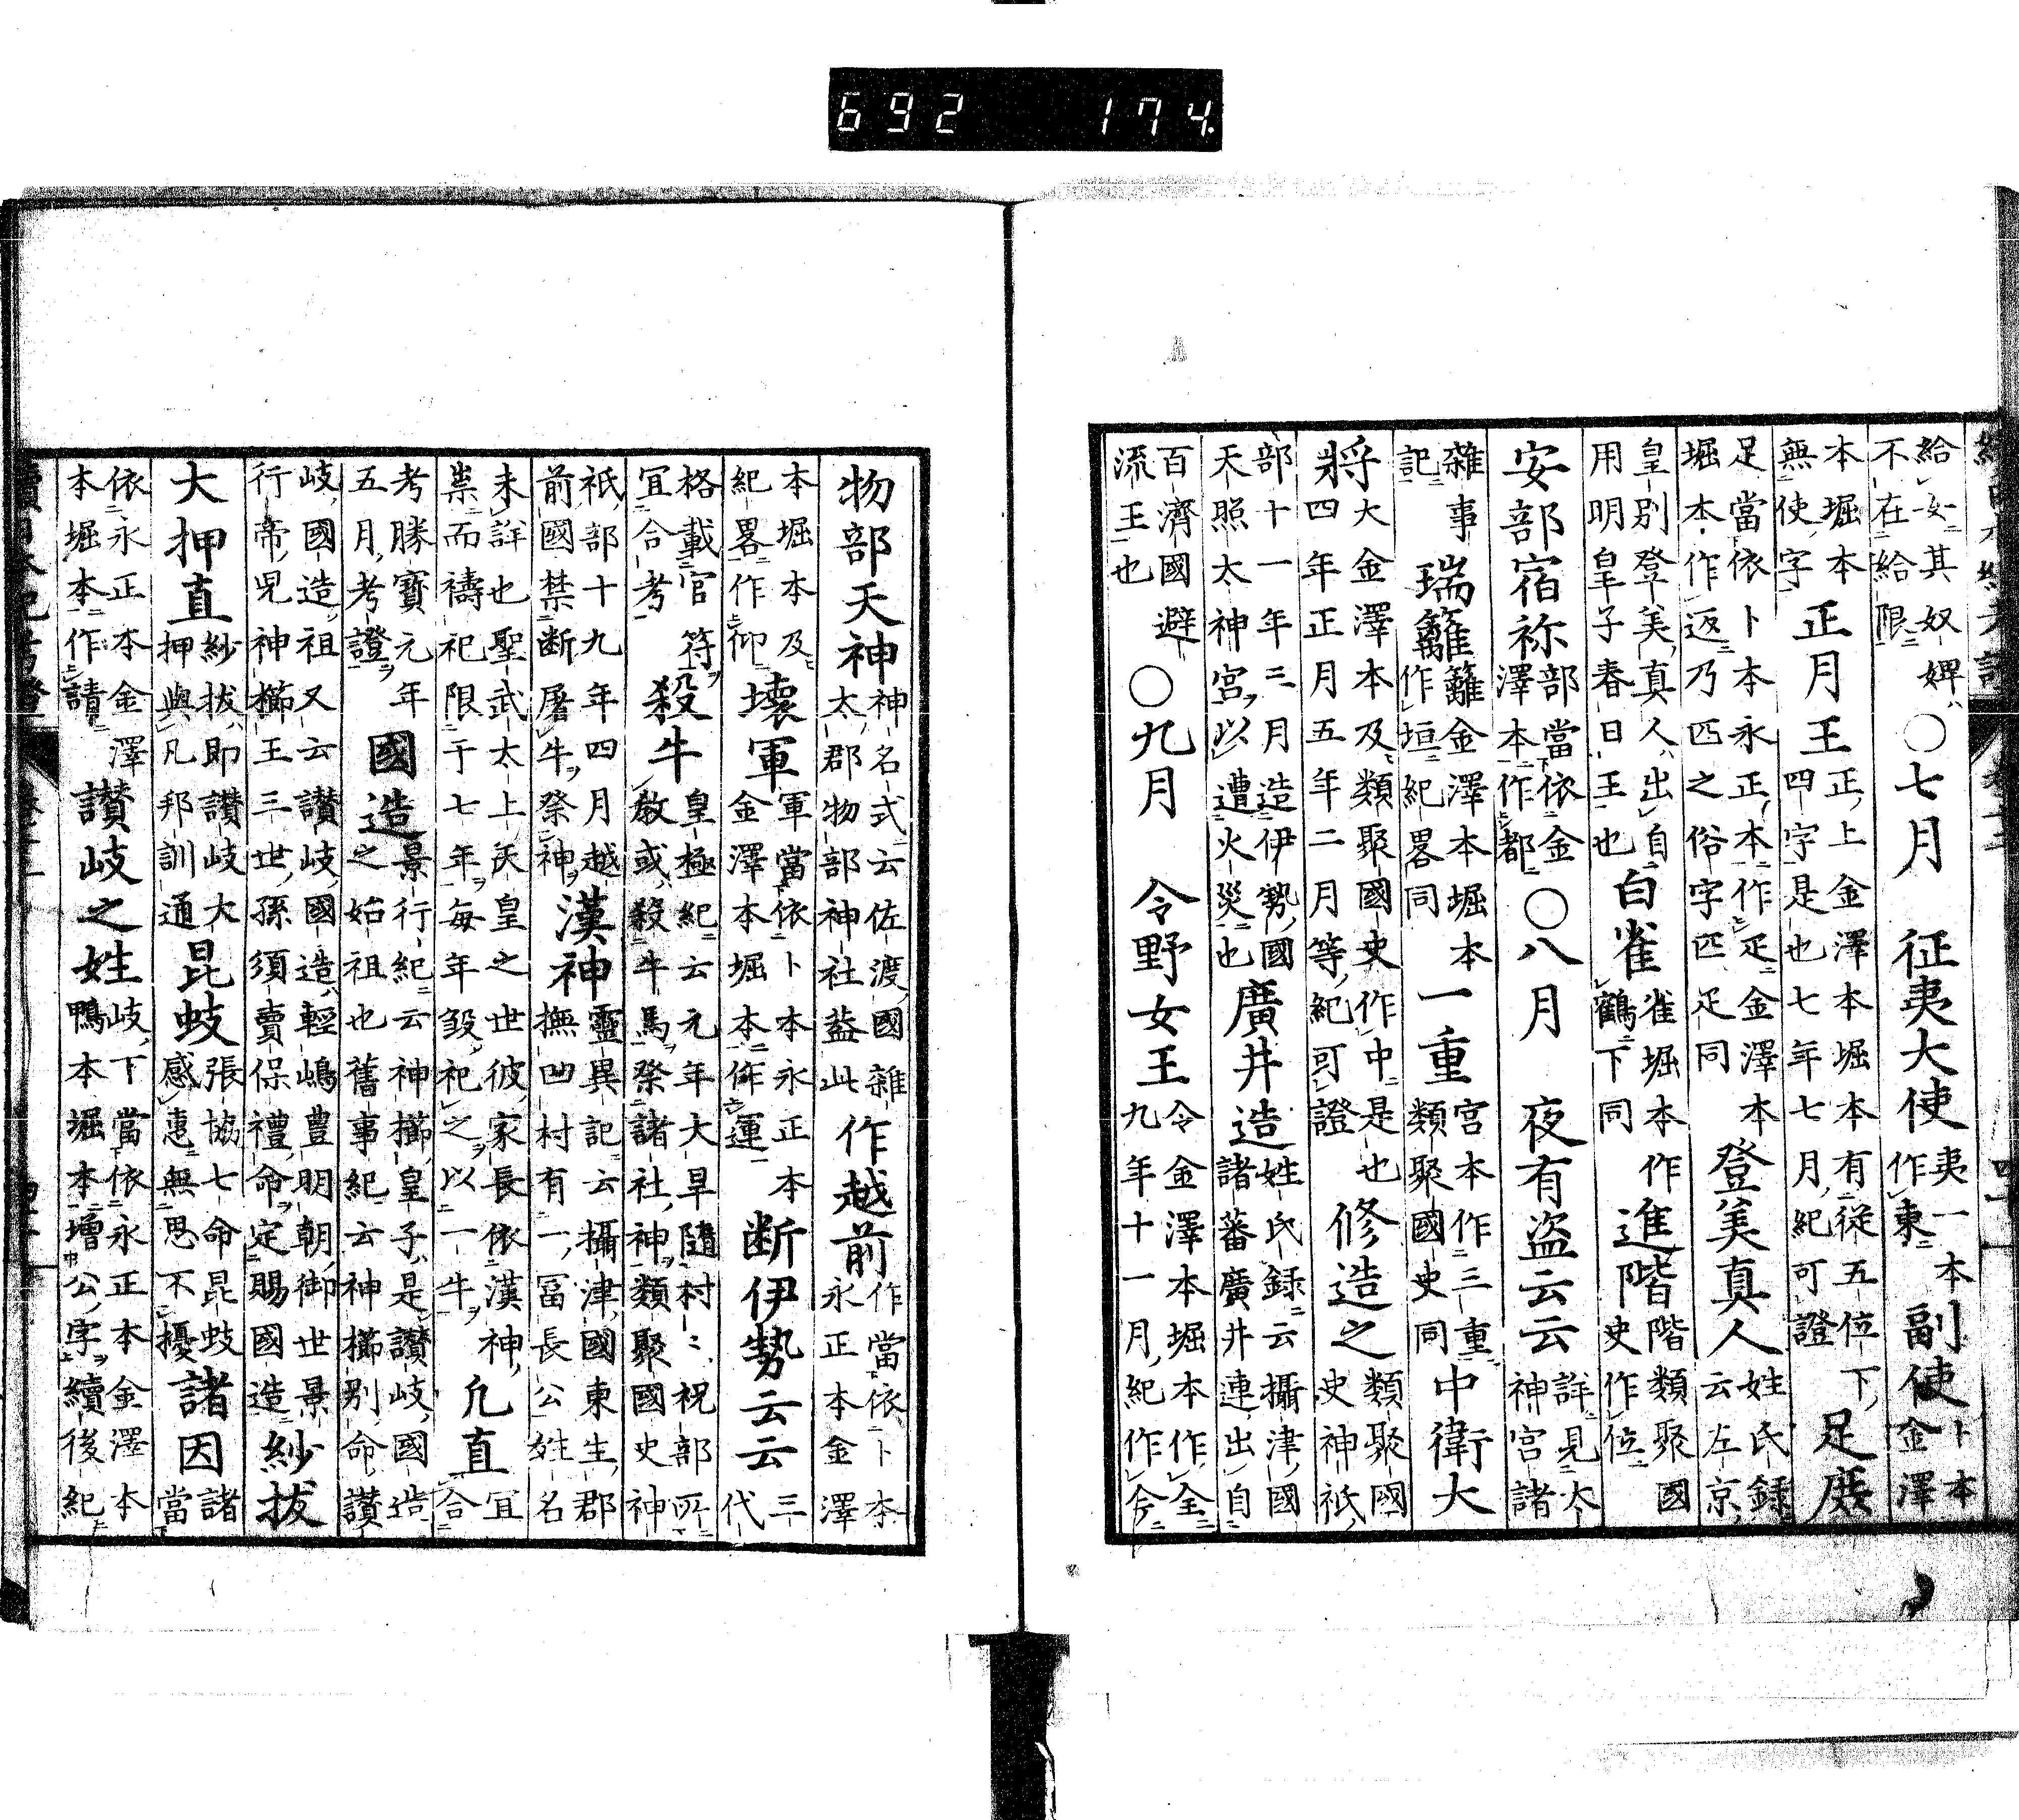 692 174.
給女其奴婢
不在給限〇七月 征夷大使夷一本作東副使卜本金澤
本堀本無使字正月王正上金澤本堀本有從五位下四字是也七年七月紀可證足廣
足當依卜本永正本作疋金澤本堀本作返乃匹之俗字匹疋同登美真人姓氏録云左京
皇別登美真人出自用明皇子春日王也白雀雀堀本作鶴下同進階階類聚國史作位
安部宿祢部當依金澤本作都〇八月 夜有盗云云詳見太神宮諸
雜事記瑞籬籬金澤本堀本作垣紀畧同一重宮本作三重類聚國史同中衛大
將大金澤本及類聚國史作中是也四年正月五年二月等紀可證修造之類聚國史神祇
部十一年三月造伊勢國天照太神宮以遭火災也廣井造姓氏録云攝津國諸蕃廣井連出自
百濟國避流王也〇九月 令野女王令金澤本堀本作全九年十一月紀作今
物部天神神名式云佐渡國雜太郡物部神社蓋此作越前作當依卜本永正本金澤
本堀本及紀畧作仰壞軍軍當依卜本永正本金澤本堀本作運断伊勢云云三代
格載官符宜合考殺牛皇極紀云元年大旱隨村々祝部所教或殺牛馬祭諸社神類聚國史神
祇部十九年四月越前國禁断屠牛祭神漢神靈異記云攝津國東生郡撫凹村有一冨長公姓名
未詳也聖武太上天皇之世彼家長依漢神祟而禱祀限于七年每年殺祀之以一牛凡直宜合
考勝寶元年五月考證國造景行紀云神櫛皇子是讃岐國造之始祖也舊事紀云神櫛別命讃
岐國造祖又云讃岐國造輕嶋豊明朝御世景行帝兒神櫛王三世孫須賣保禮命定賜國造紗拔
大押直紗拔即讃岐大押與凡邦訓通昆蚑張協七命昆蚑感惠無思不擾諸因諸當
依永正本金澤本堀本作請讃岐之姓岐下當依永正本金澤本鴨本堀本増公字續後紀